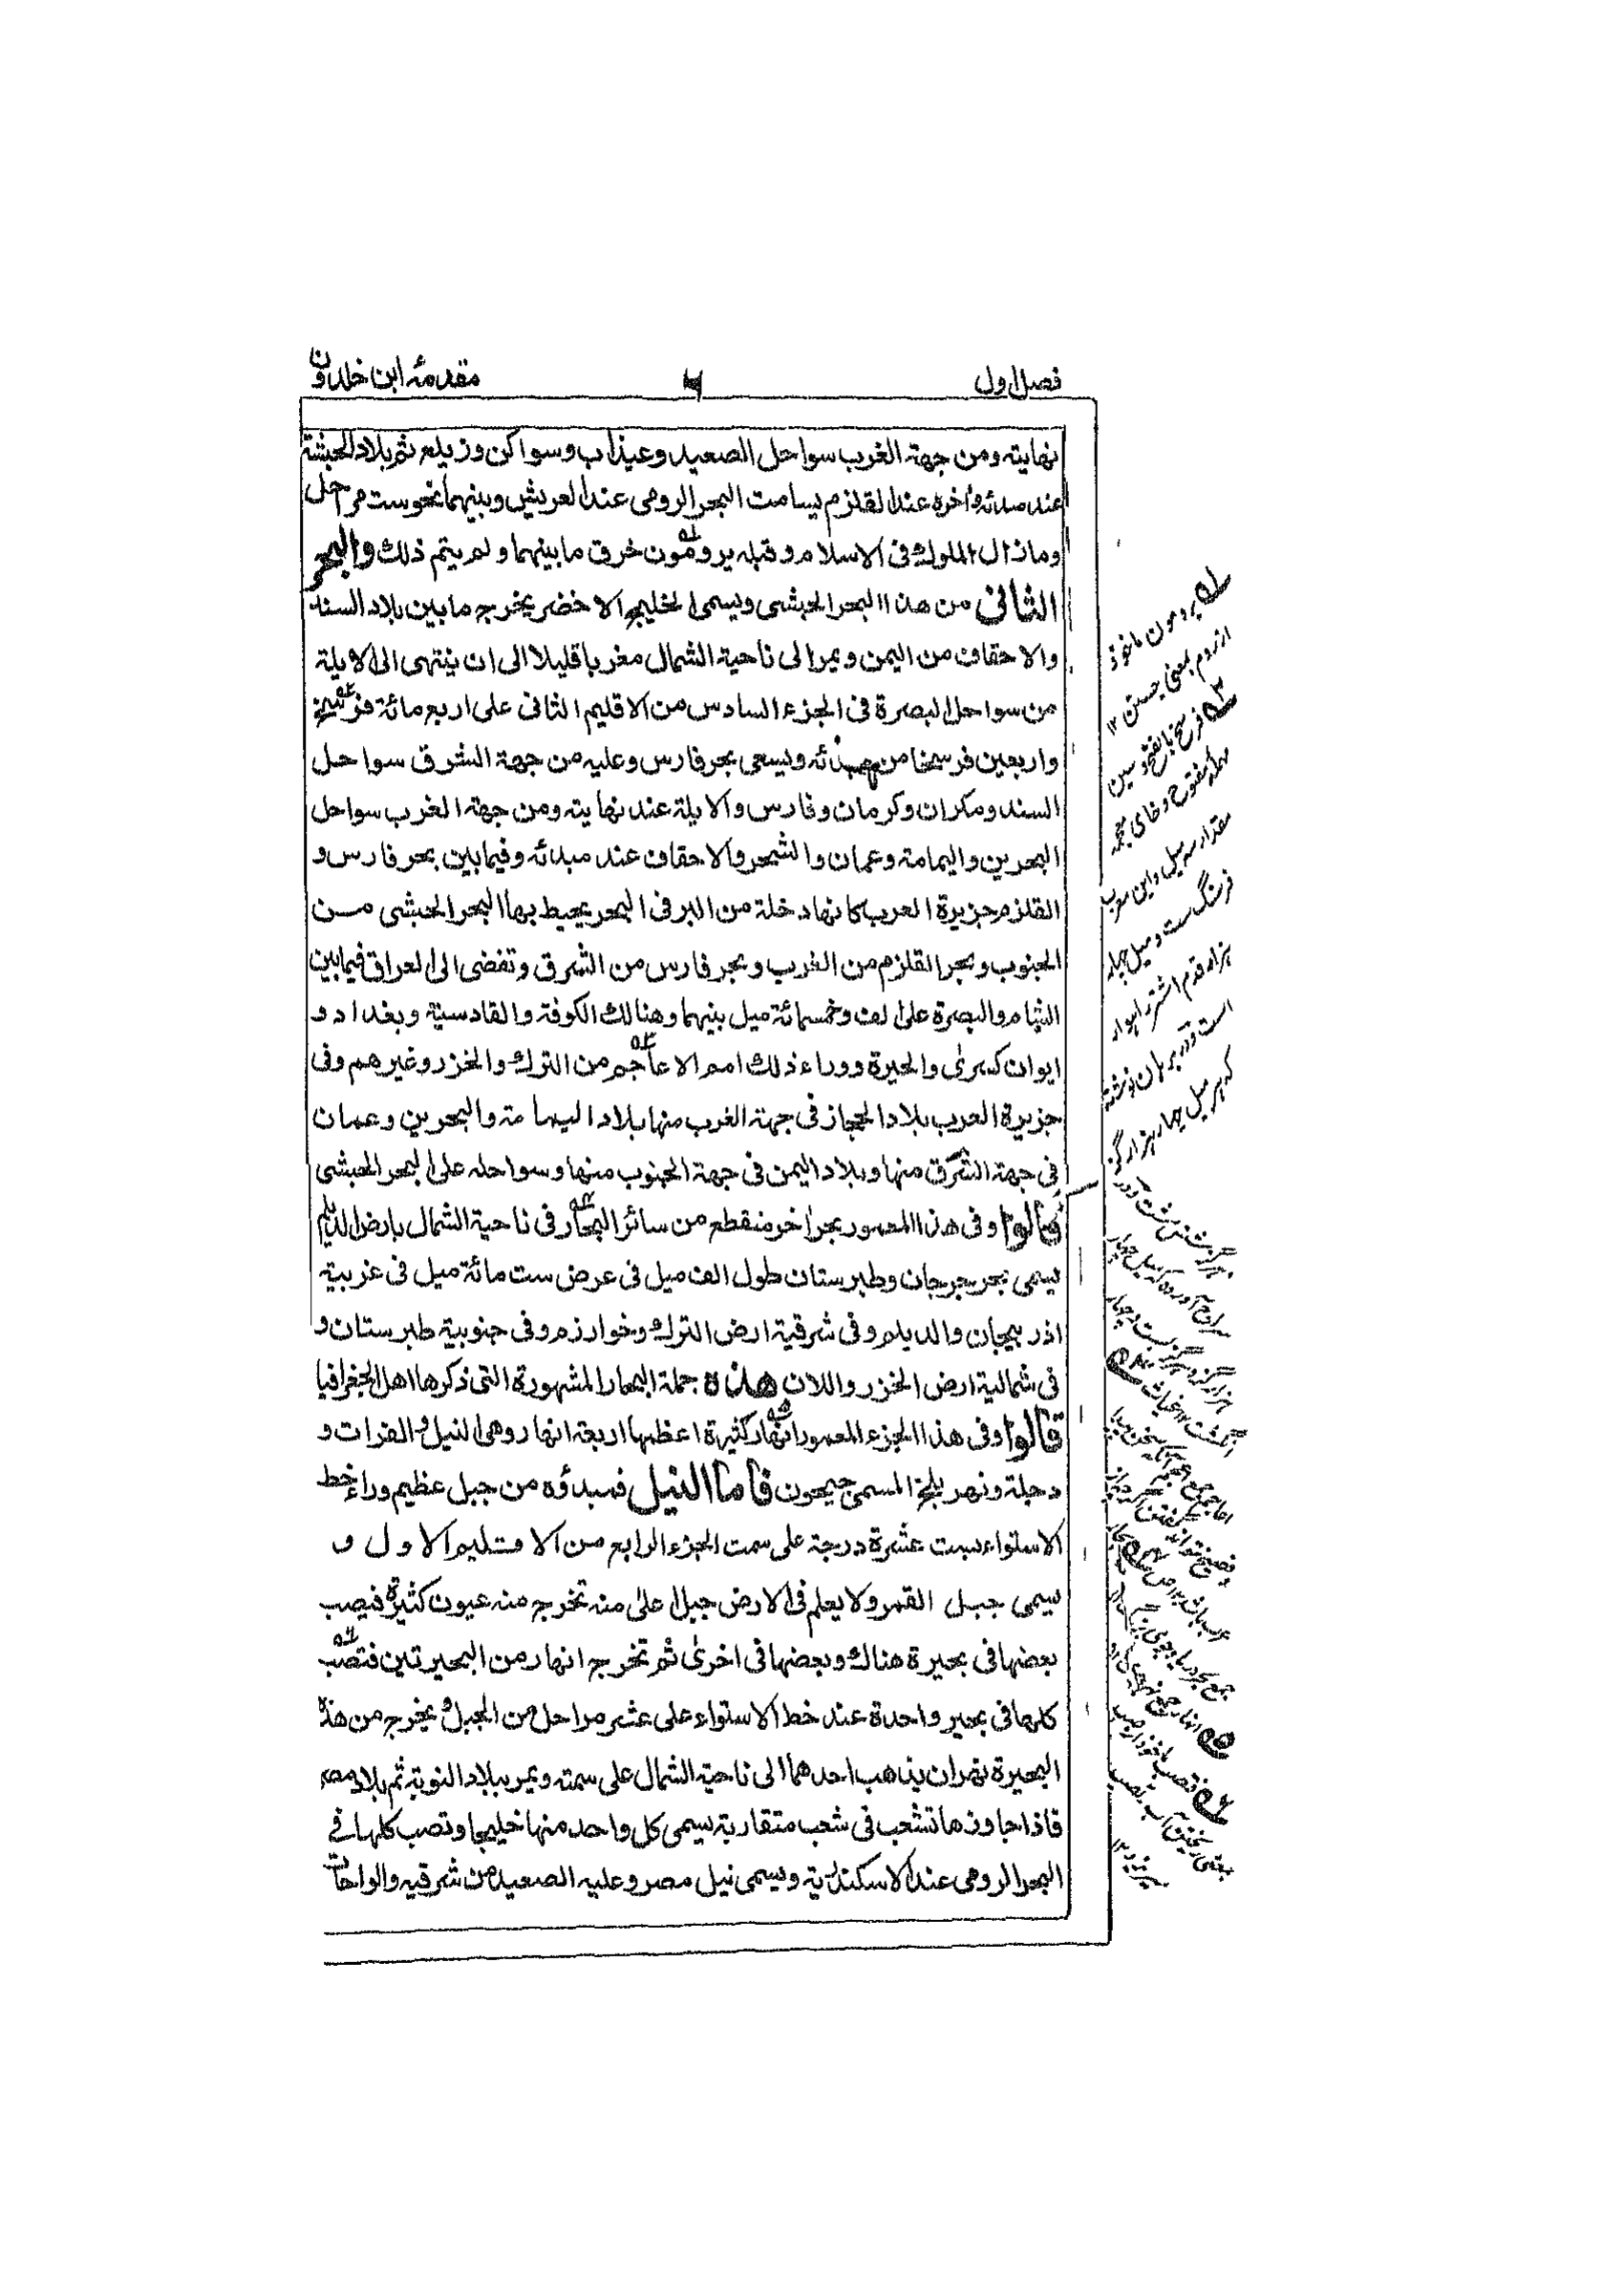 فصل اول
٦
مقدمۂ ابن خلدون
نهايته ومن جهة الغرب سواحل الصعيد وعيذاب وسواكن وزيلع ثم بلاد الحبشة
عند مبدئه وٰاخره عند القلزم يسامت البحر الرومى عند العريش وبينهما نحوست مراحل
وما زال الملوك فى الاسلام وقبله يرومون خرق ما بينهما ولم يتم ذلك والبحر
الثانى من هذا البحر الحبشى ويسمى الخليج الاخضر يخرج ما بين بلاد السند
والاحقاف من اليمن ويمر الى ناحية الشمال مغربا قليلا الى ان ينتهى الى الابلة
من سواحل البصرة فى الجزء السادس من الاقليم الثانى على اربع مائة فرسخ
واربعين فرسخا من مبدئه ويسمى بحر فارس وعليه من جهة الشرق سواحل
السند ومكران وكرمان وفارس والابلة عند نهايته ومن جهة الغرب سواحل
البحرين واليمامة وعمان والشحر والاحقاف عند مبدئه وفيما بين بحر فارس و
القلزم جزيرة العرب كانها دخلة من البر فى البحر يحيط بها البحر الحبشى من
الجنوب وبحر القلزم من الغرب وبحر فارس من الشرق وتفضى الى العراق فيما بين
الشام والبصرة على الف وخمسمائة ميل بينهما وهنالك الكوفة والقادسية وبغداد و
ايوان كسرىٰ والحيرة ووراء ذلك امم الاعاجم من الترك والخزر وغيرهم وفى
جزيرة العرب بلاد الحجاز فى جهة الغرب منها بلاد اليمامة والبحرين وعمان
فى جهة الشرق منها وبلاد اليمن فى جهة الجنوب منها وسواحله على البحر الحبشى
قالوا وفى هذا المعمور بحر اٰخر منقطع من سائر البحار فى ناحية الشمال بارض الديلم
يسمى بحر جرجان وطبرستان طول الف ميل فى عرض ست مائة ميل فى غربية
اذربيجان والديلم وفى شرقية ارض الترك وخوارزم وفى جنوبية طبرستان و
فى شمالية ارض الخزر واللان هذه جملة البحار المشهورة التى ذكرها اهل الجغرافيا
قالوا وفى هذا الجزء المعمور انهار كثيرة اعظمها اربعة انهار وهى النيل والفرات و
دجلة ونهر بلخ المسمى جيحون فاما النيل فمبدؤه من جبل عظيم وراء خط
الاستواء بست عشرة درجة على سمت الجزء الرابع من الاقليم الاول و
يسمى جبل القمر ولا يعلم فى الارض جبل اعلىٰ منه تخرج منه عيون كثيرة فيصب
بعضها فى بحيرة هناك وبعضها فى اخرىٰ ثم تخرج انهار من البحيرتين فتصب
كلها فى بحير واحدة عند خط الاستواء على عشر مراحل من الجبل ويخرج من هذه
البحيرة نهران يذهب احدهما الى ناحية الشمال على سمته ويمر ببلاد النوبة ثم بلاد مصر
فاذا جاوزها تشعب فى شعب متقاربة يسمى كل واحد منها خليجا وتصب كلها فى
البحر الرومى عند الاسكندرية ويسمى نيل مصر وعليه الصعيد من شرقيه والواحات
يرومون ماخوذ
از روم بمعنى جستن ١٢
فرسخ بالفتح وسين
مهمله مفتوح وخاى معجمه
مقدار سه ميل واين معرب
فرسنگ ست و ميل چهار
هزار قدم اشتر
است و در برهان نوشته
كه هر ميل چهار هزار گز